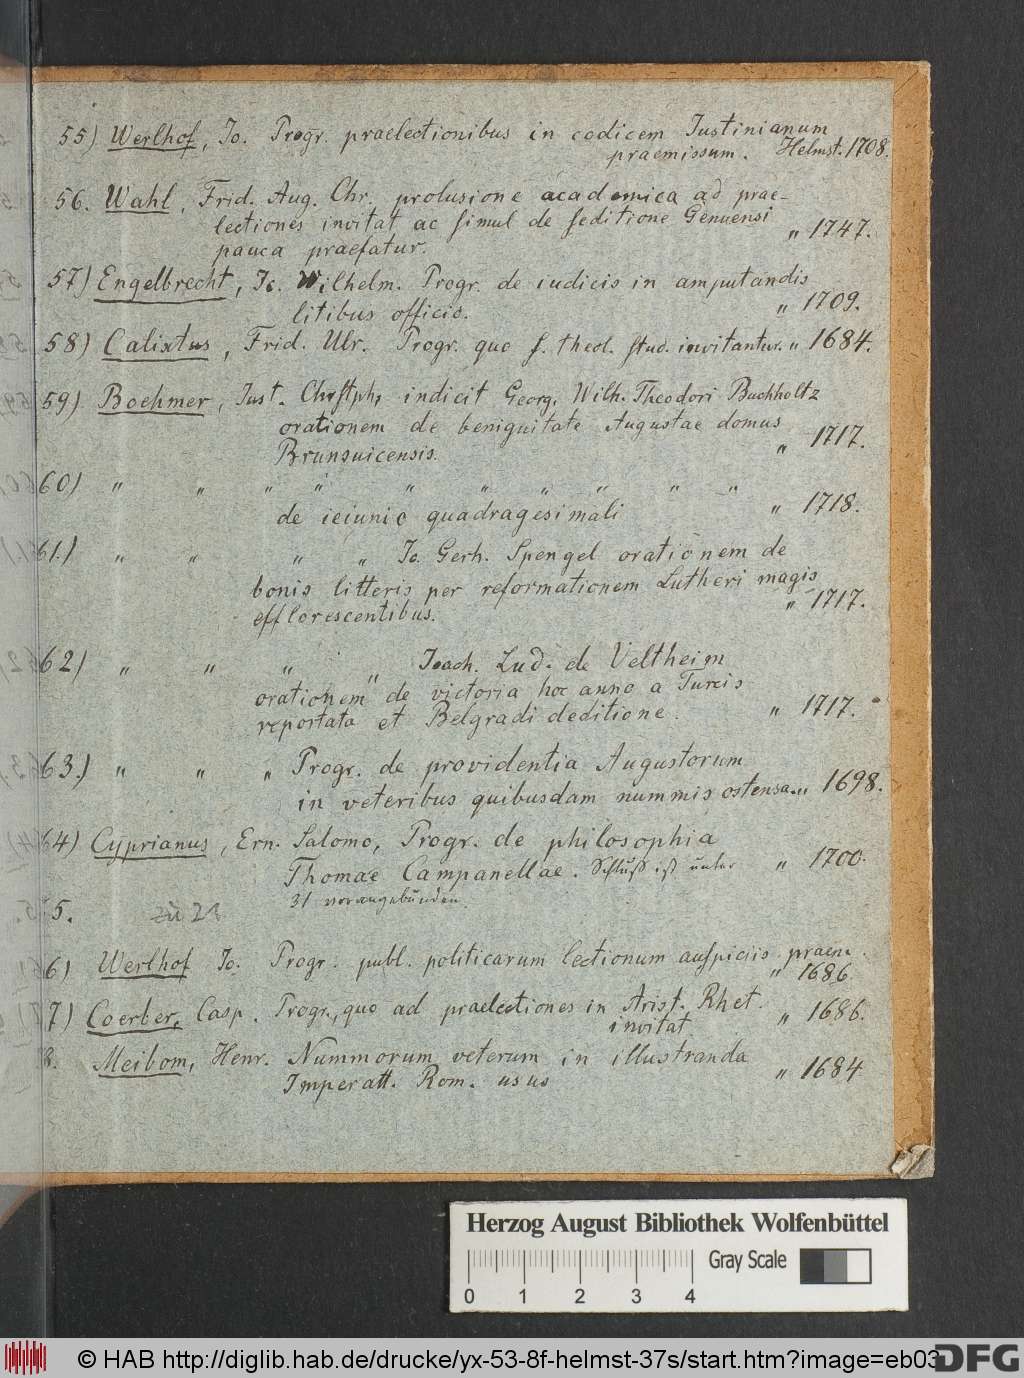 55) Werlhof, Jo. Progr. praelectionibus in codicem Justinianum
praemissum. Helmst. 1708.
56. Wahl, Frid. Aug. Chr. prolusione academica ad prae-
lectiones invitat ac simul de seditione Genuensi
pauca praefatur. " 1747.
57) Engelbrecht, Jo. Wilhelm. Progr. de iudicis in amputandis
litibus officio. " 1709.
58) Calixtus, Frid. Ulr. Progr. quo s. theol. stud. invitantur. " 1684.
59) Boehmer, Just. Chrstph, indicit Georg. Wilh. Theodori Buchholtz
orationem de benignitate Augustae domus
Brunsuicensis. " 1717.
60) " " " " " " " " " "
de ieiunio quadragesimali " 1718.
61.) " " " " Jo. Gerh. Spengel orationem de
bonis litteris per reformationem Lutheri magis
efflorescentibus. " 1717.
62) " " " " Joach. Lud. de Veltheim
orationem de victoria hoc anno a Turcis
reportata et Belgradi deditione. " 1717.
63.) " " " Progr. de providentia Augustorum
in veteribus quibusdam nummis ostensa. " 1698.
64) Cyprianus, Ern. Salomo, Progr. de philosophia
Thomae Campanellae. Schluß ist unter " 1700.
31 vorangebunden.
5. zu 23
6) Werlhof Jo. Progr. publ. politicarum lectionum auspiciis praem.
" 1686.
7) Coerber, Casp. Progr., quo ad praelectiones in Arist. Rhet.
invitat " 1686.
8. Meibom, Henr. Nummorum veterum in illustranda
Imperatt. Rom. usus " 1684
Herzog August Bibliothek Wolfenbüttel
Gray Scale
0 1 2 3 4
© HAB http://diglib.hab.de/drucke/yx-53-8f-helmst-37s/start.htm?image=eb03
DFG